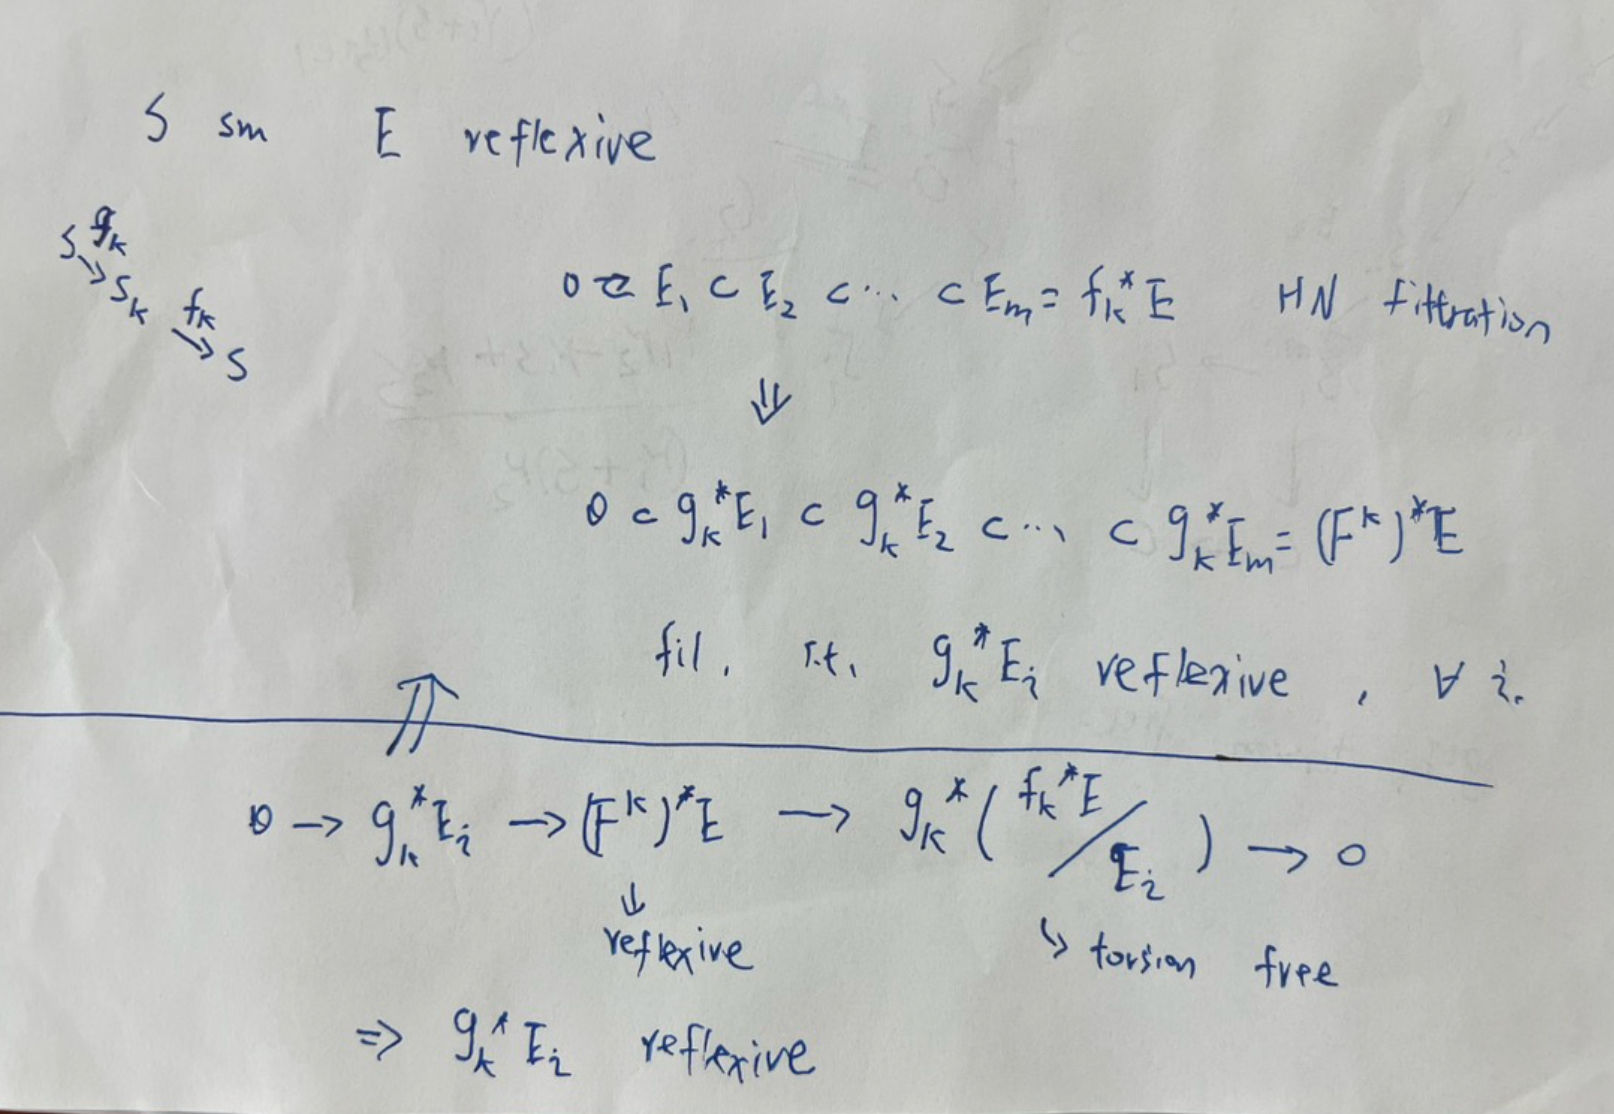 S sm E reflexive
S g_k
→ S_k f_k
→ S
0 ⊂ E_1 ⊂ E_2 ⊂ ⋯ ⊂ E_m = f_k^* E HN filtration
⇓
0 ⊂ g_k^* E_1 ⊂ g_k^* E_2 ⊂ ⋯ ⊂ g_k^* E_m = (F^k)^* E
fil. s.t. g_k^* E_i reflexive , ∀ i.
⇑
0 → g_k^* E_i → (F^k)^* E → g_k^* ( f_k^* E / E_i ) → 0
↓
reflexive
↳ torsion free
⇒ g_k^* E_i reflexive